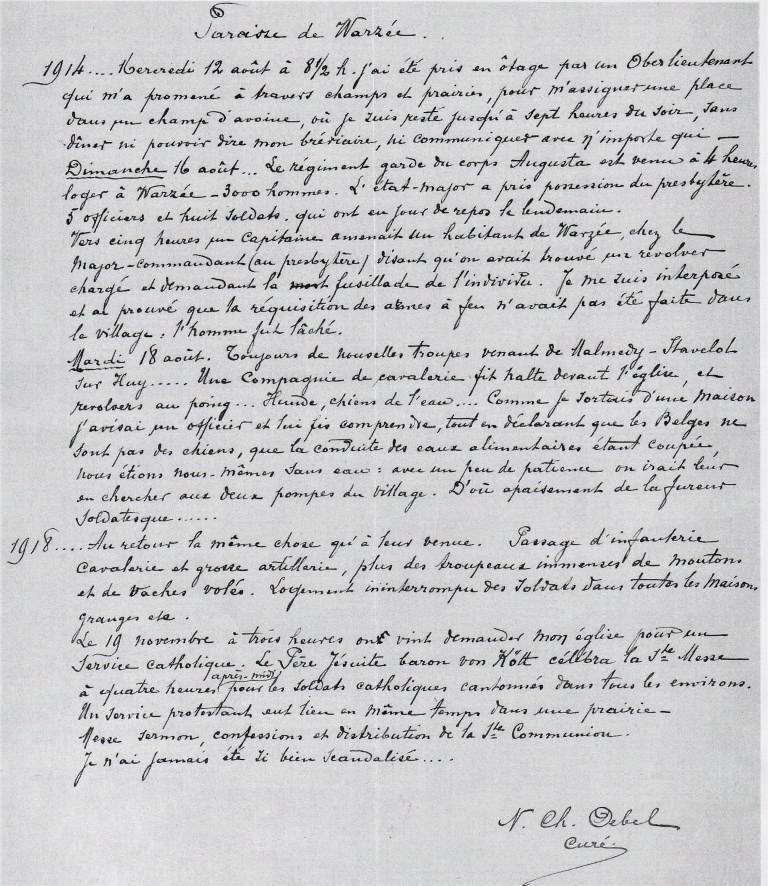 Paroisse de Warzée.
1914.... Mercredi 12 août à 8 1/2 h. j'ai été pris en ôtage par un Oberlieutenant
qui m'a promené à travers champs et prairies, pour m'assigner une place
dans un champ d'avoine, où je suis resté jusqu'à sept heures du soir, sans
dîner ni pouvoir dire mon bréviaire, ni communiquer avec n'importe qui —
Dimanche 16 août... Le régiment garde du corps Augusta est venu à 4 heures
loger à Warzée - 3000 hommes. L'état-major a pris possession du presbytère.
5 officiers et huit soldats. qui ont eu jour de repos le lendemain.
Vers cinq heures un Capitaine amenait un habitant de Warzée, chez le
Major-commandant (au presbytère) disant qu'on avait trouvé un revolver
chargé et demandant la mort fusillade de l'individu. Je me suis interposé
et ai prouvé que la réquisition des armes à feu n'avait pas été faite dans
le village : l'homme fut lâché.
Mardi 18 août. Toujours de nouvelles troupes venant de Malmedy - Stavelot
sur Huy..... Une Compagnie de cavalerie fit halte devant l'église, et
revolvers au poing... Hunde, chiens de l'eau.... Comme je sortais d'une maison
j'avisai un officier et lui fis comprendre, tout en déclarant que les Belges ne
sont pas des chiens, que la conduite des eaux alimentaires étant coupée,
nous étions nous-mêmes sans eau : avec un peu de patience on irait leur
en chercher aux deux pompes du village. D'où apaisement de la fureur
soldatesque......
1918.... Au retour la même chose qu'à leur venue. Passage d'infanterie
cavalerie et grosse artillerie, plus des troupeaux immenses de moutons
et de vaches volés. Logement ininterrompu des soldats dans toutes les maisons
granges etc.
Le 19 novembre à trois heures on vint demander mon église pour un
Service catholique. Le Père Jésuite baron von Kött célébra la Ste Messe
à quatre heures après-midi pour les soldats catholiques cantonnés dans tous les environs.
Un service protestant eut lieu en même temps dans une prairie —
Messe sermon, confessions et distribution de la Ste Communion.
Je n'ai jamais été si bien scandalisé....
N. Ch. Oebel
Curé.